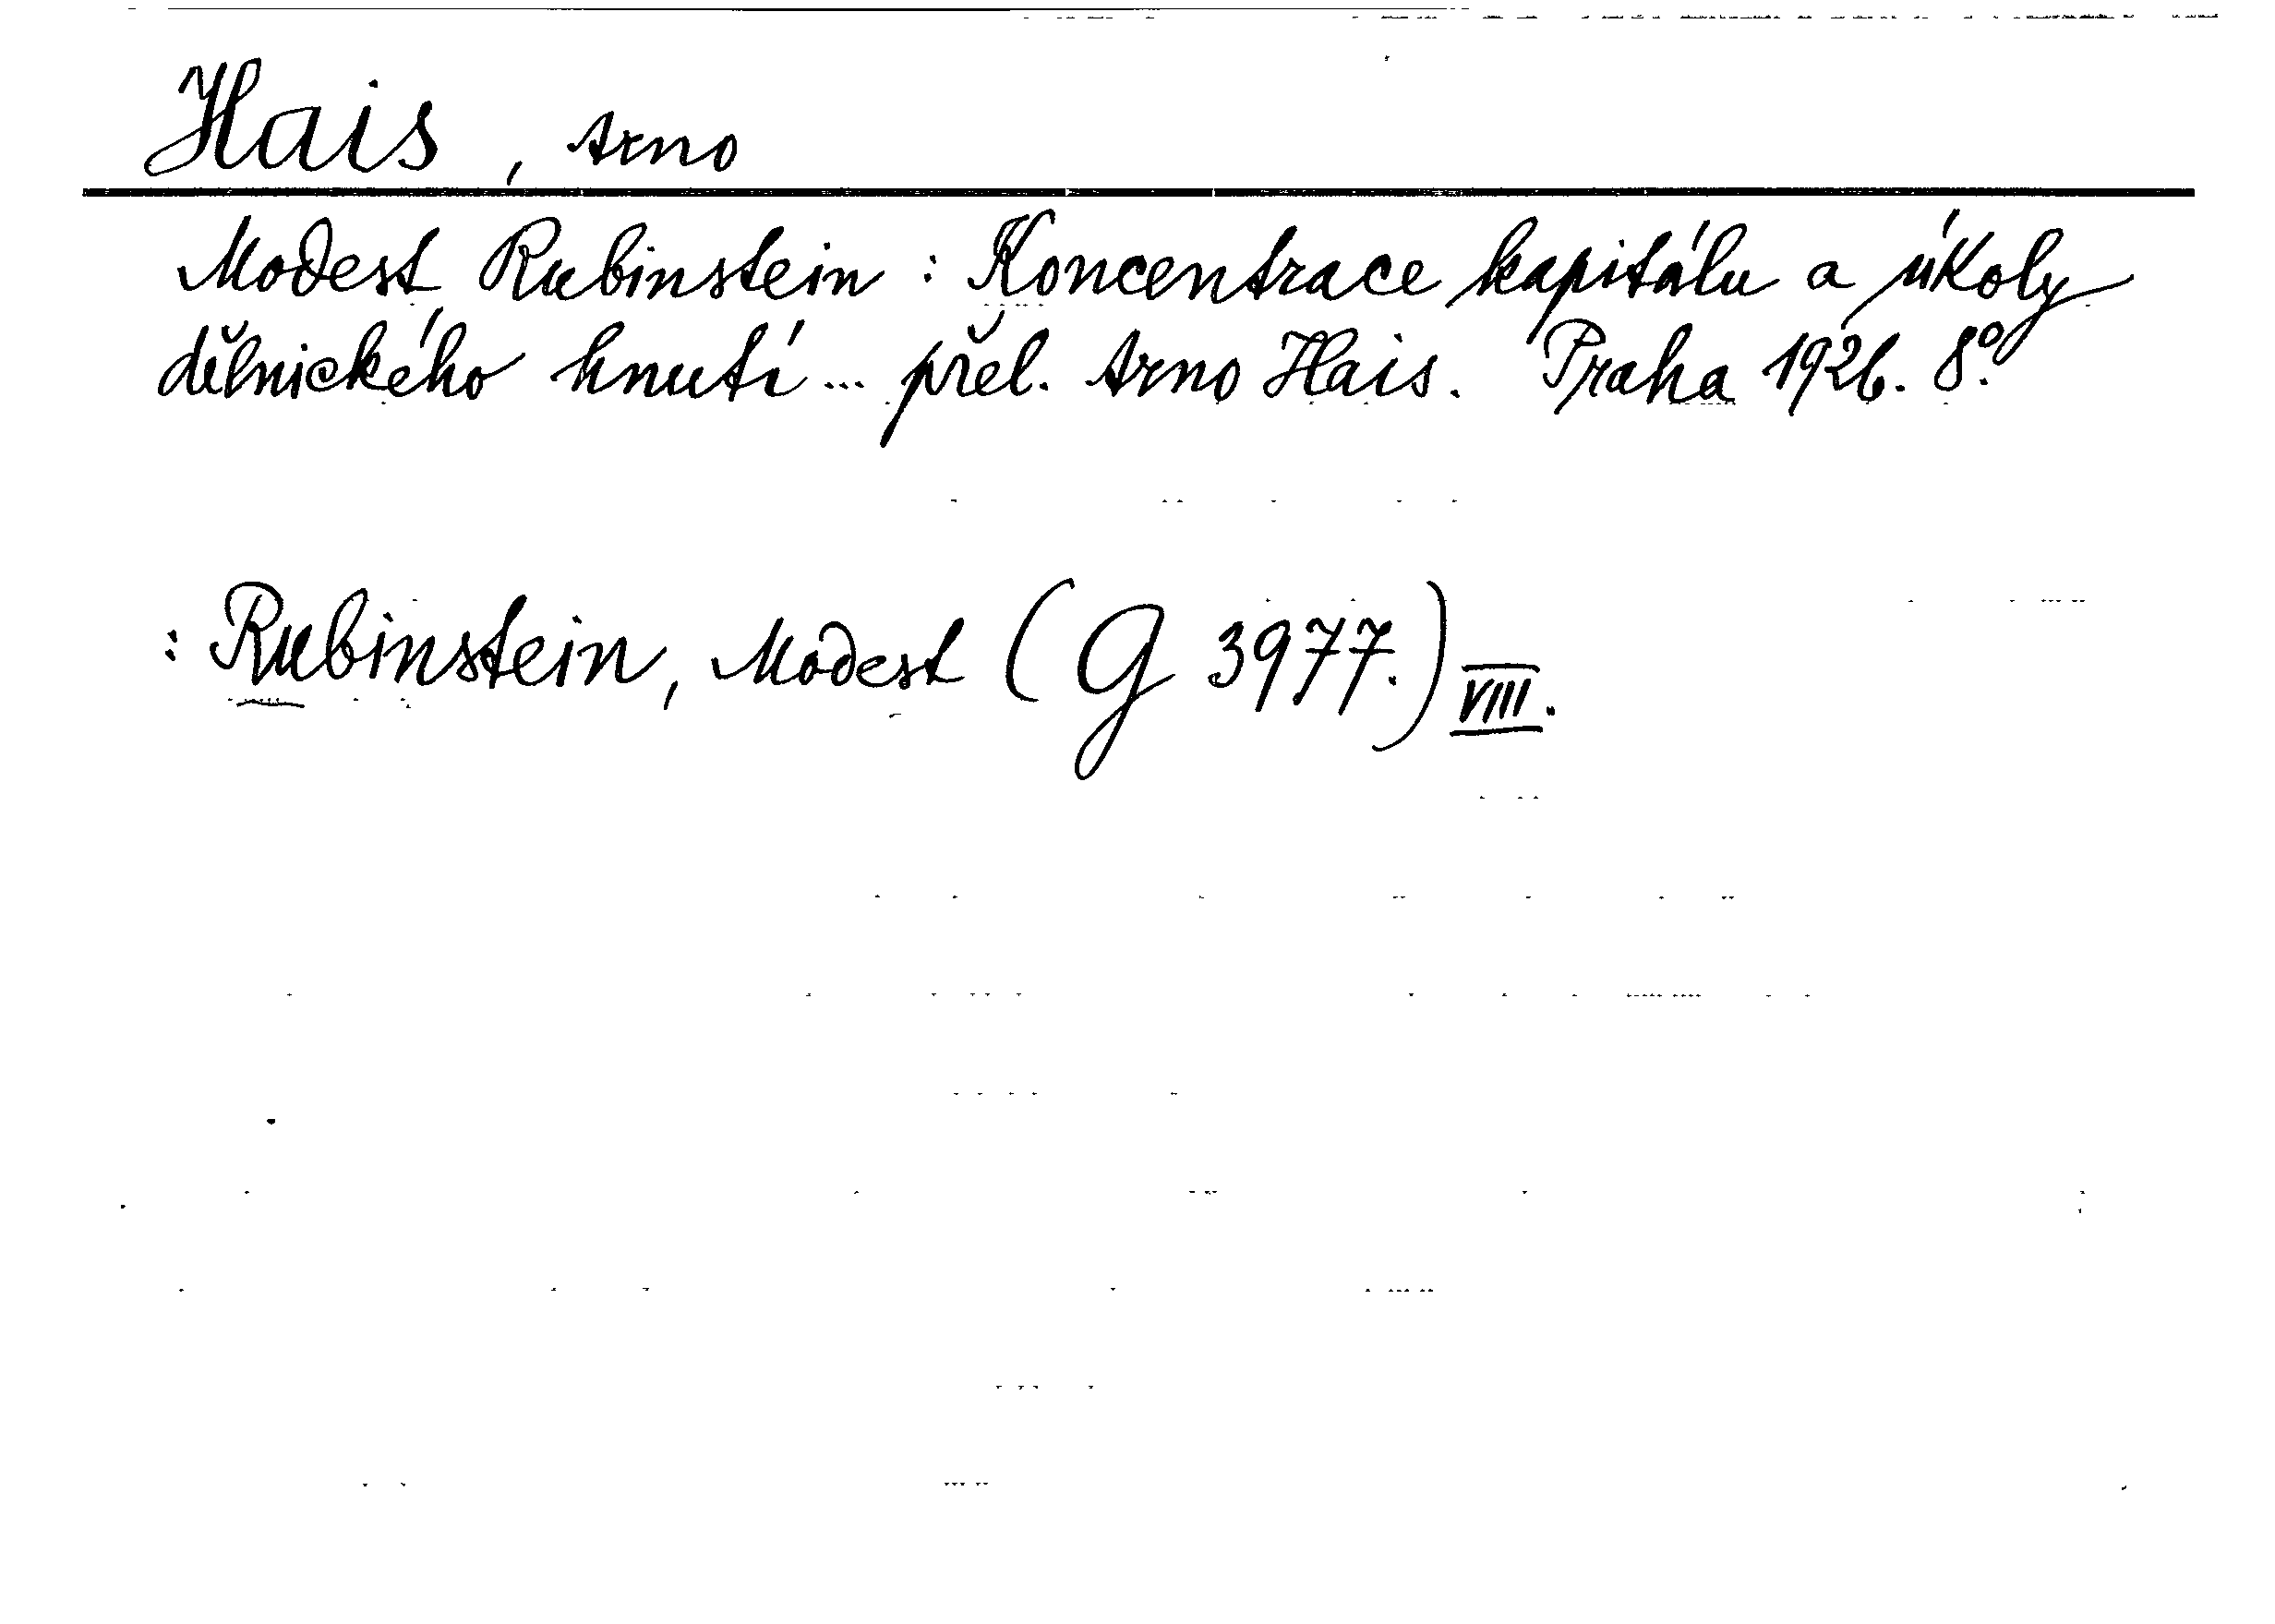 Hais, Arno
Modest Rubinstein : Koncentrace kapitálu a úkoly
dělnického hnutí ... přel. Arno Hais. Praha 1926. 8°.
: Rubinstein, Modest (G 3977.) VIII.